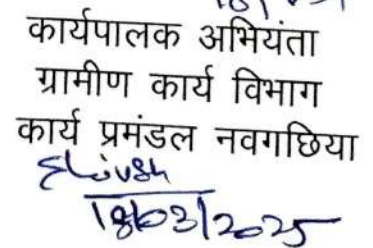 कार्यपालक अभियंता
ग्रामीण कार्य विभाग
कार्य प्रमंडल नवगछिया
18/03/2025